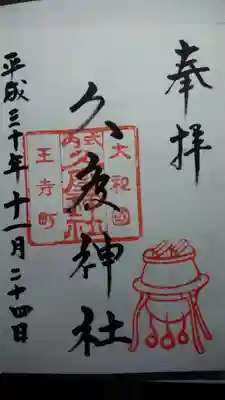 奉拝
久度神社
大和國
式内
久度神社
王寺町
平成三十年十一月二十四日